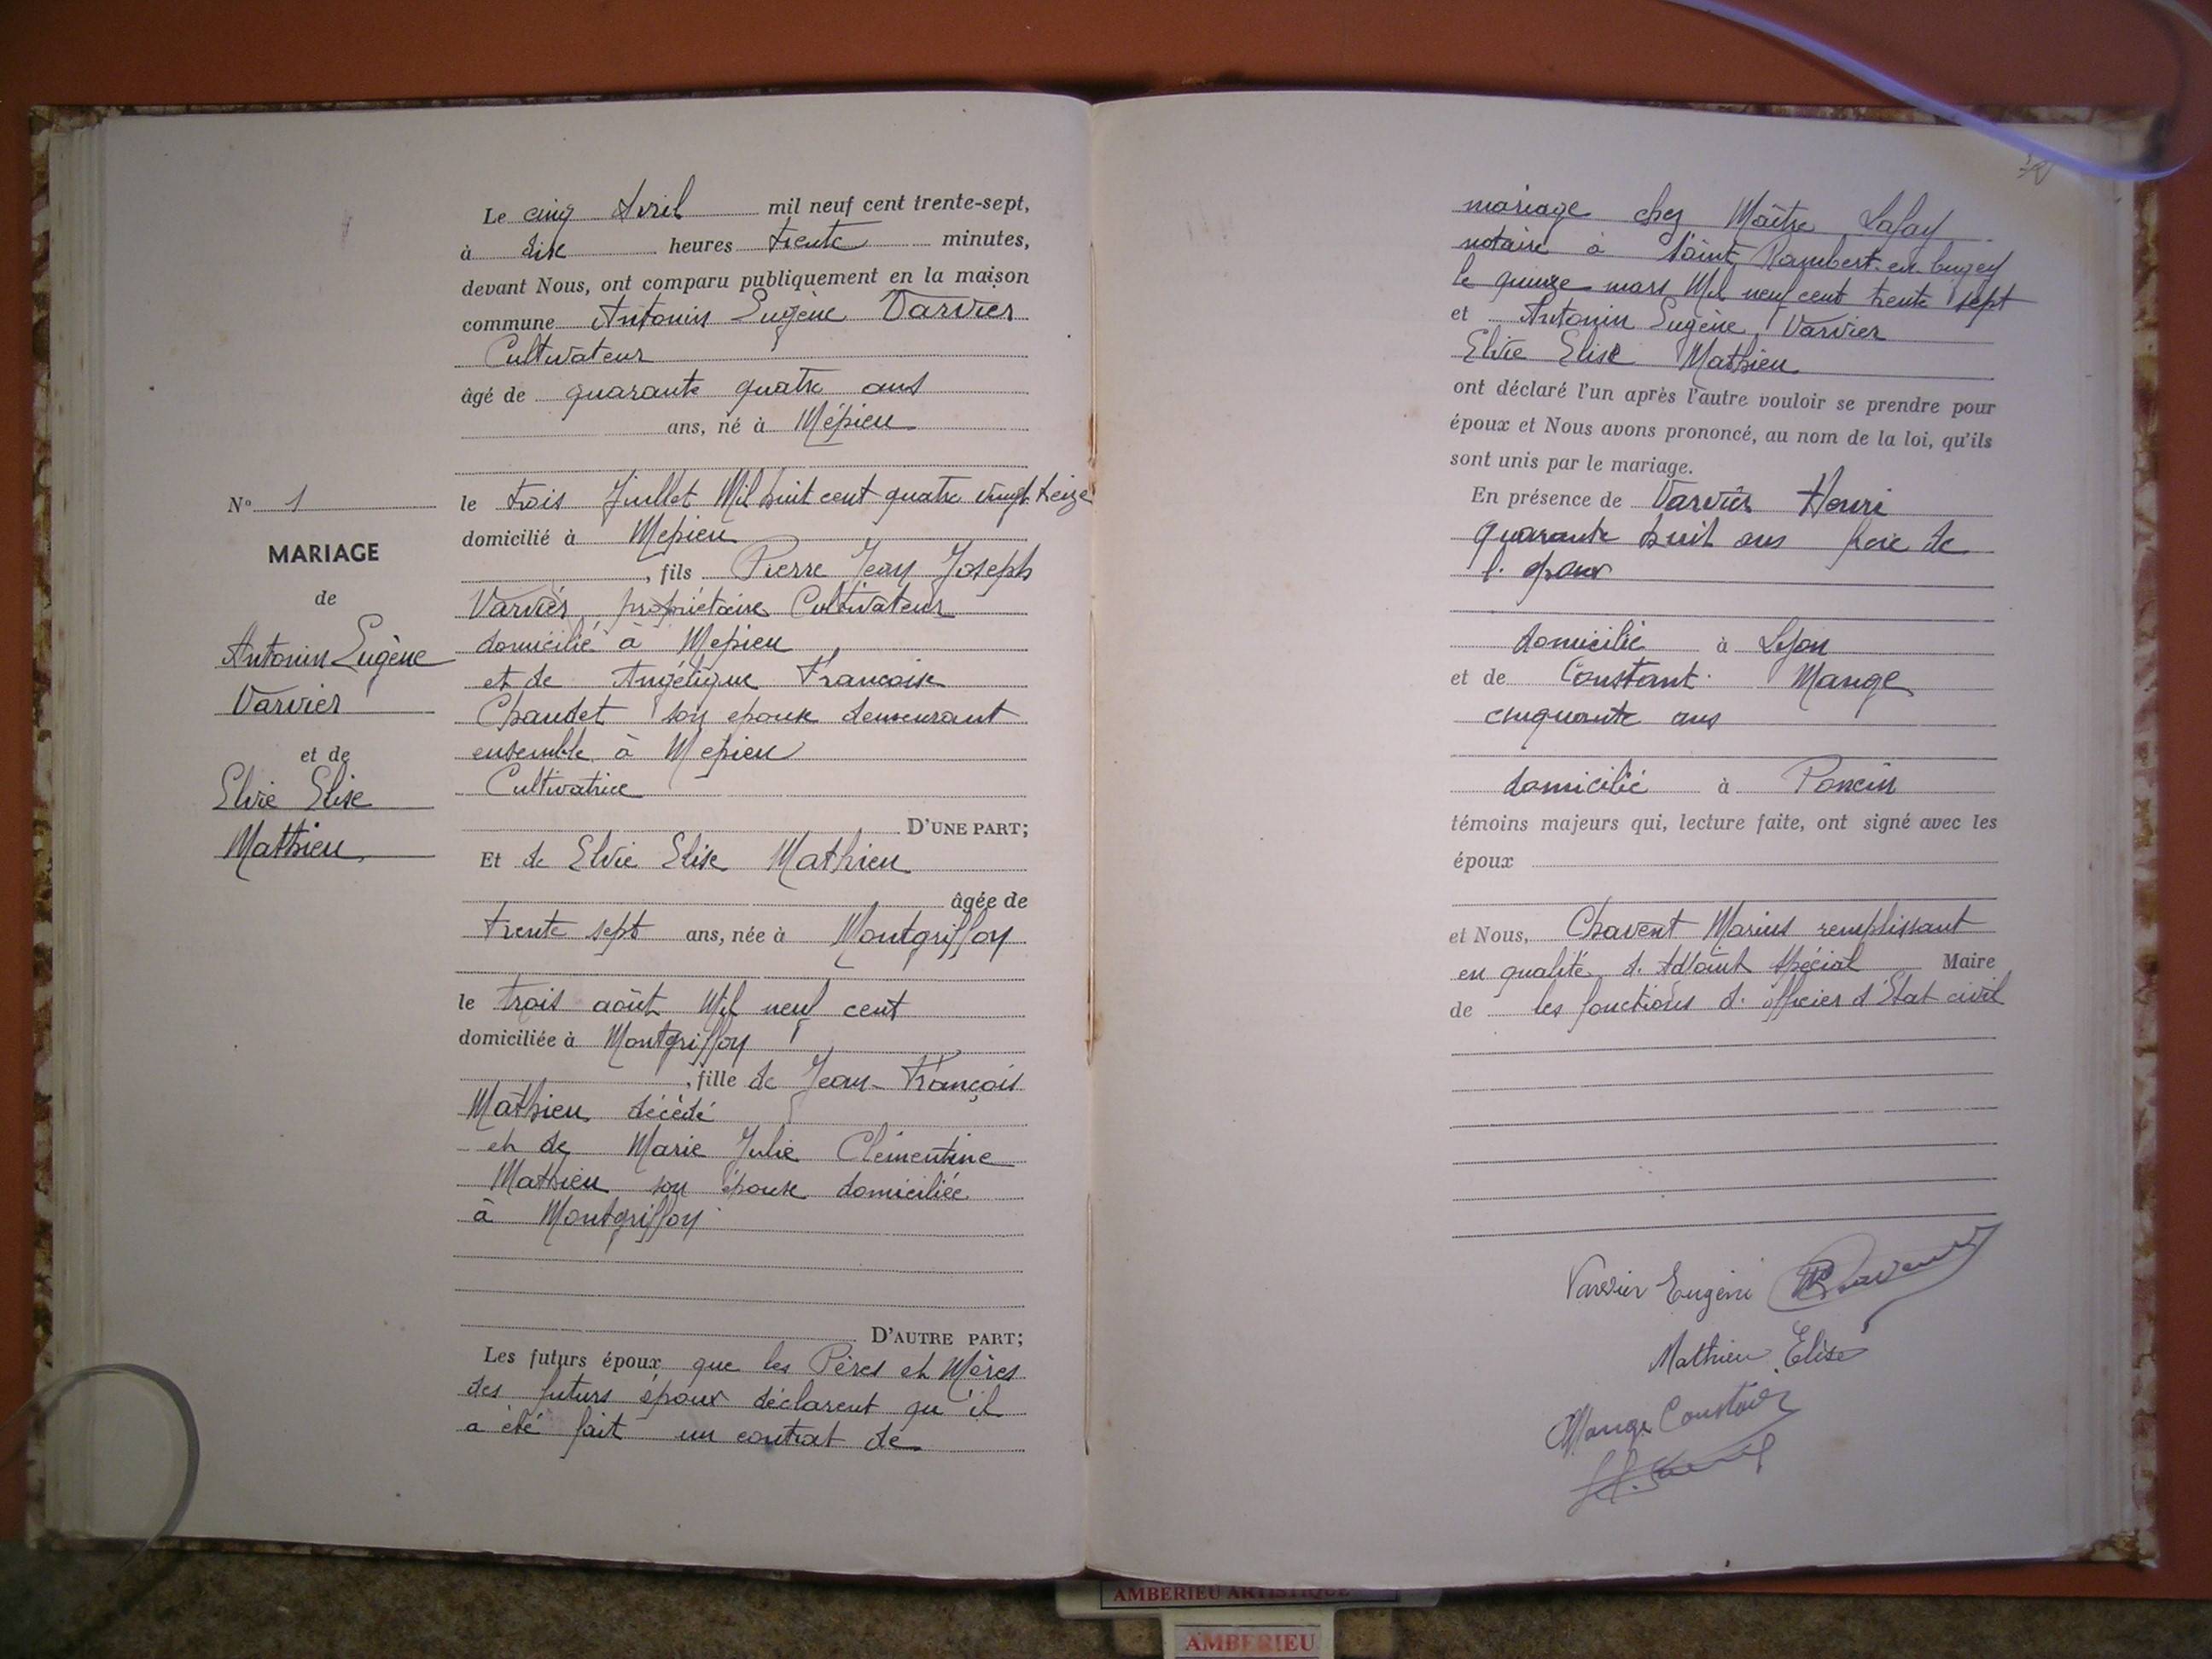 Le cinq Avril mil neuf cent trente-sept,
à dix heures trente minutes,
devant Nous, ont comparu publiquement en la maison
commune Antonin Eugène Varvier
Cultivateur
âgé de quarante quatre ans
ans, né à Mépieu
le trois Juillet Mil huit cent quatre vingt treize
domicilié à Mepieu
, fils Pierre Jean Joseph
Varvier, propriétaire Cultivateur
domicilié à Mepieu
et de Angélique Francoise
Chaudet son epouse demeurant
ensemble à Mepieu
Cultivatrice
D'UNE PART;
Et de Elvie Elise Mathieu
âgée de
trente sept ans, née à Montgriffon
le trois août Mil neuf cent
domiciliée à Montgriffon
, fille de Jean-François
Mathieu décèdé
et de Marie Julie Clémentine
Mathieu son épouse domiciliée
à Montgriffon
D'AUTRE PART;
Les futurs époux que les Pères et Mères
des futurs époux déclarent qu'il
a été fait un contrat de
N° 1
MARIAGE
de
Antonin Eugène
Varvier
et de
Elvie Elise
Mathieu
mariage chez Maître Lafay
notaire à Saint Rambert-en-bugey
le quinze mars Mil neuf cent trente sept
et Antonin Eugène Varvier
Elvie Elise Mathieu
ont déclaré l'un après l'autre vouloir se prendre pour
époux et Nous avons prononcé, au nom de la loi, qu'ils
sont unis par le mariage.
En présence de Varvier Henri
quarante huit ans frère de
l'époux
domicilié à Lyon
et de Constant Mange
cinquante ans
domicilié à Poncin
témoins majeurs qui, lecture faite, ont signé avec les
époux
et Nous, Chavent Marius remplissant
en qualité d'Adjoint Spécial Maire
de les fonctions d'officier d'Etat civil
Varvier Eugène Chavent
Mathieu Elise
Mange Constant
AMBERIEU ARTISTIQUE
AMBERIEU